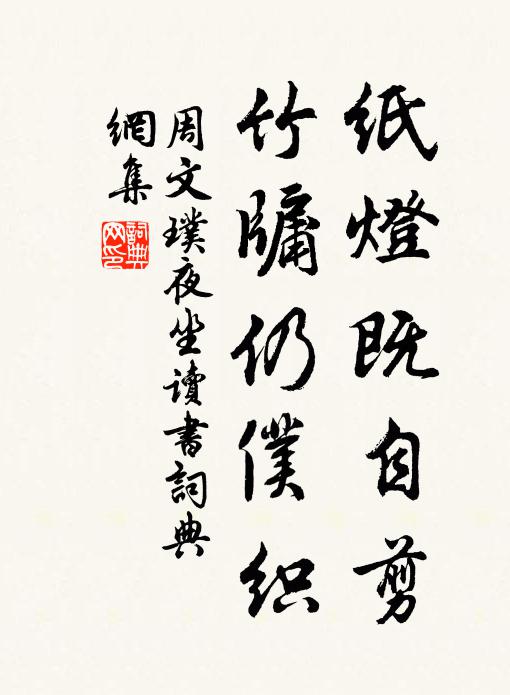 紙燈既自剪
竹牗仍僕织
周文璞夜坐讀書詞典
網集
詞典
网印